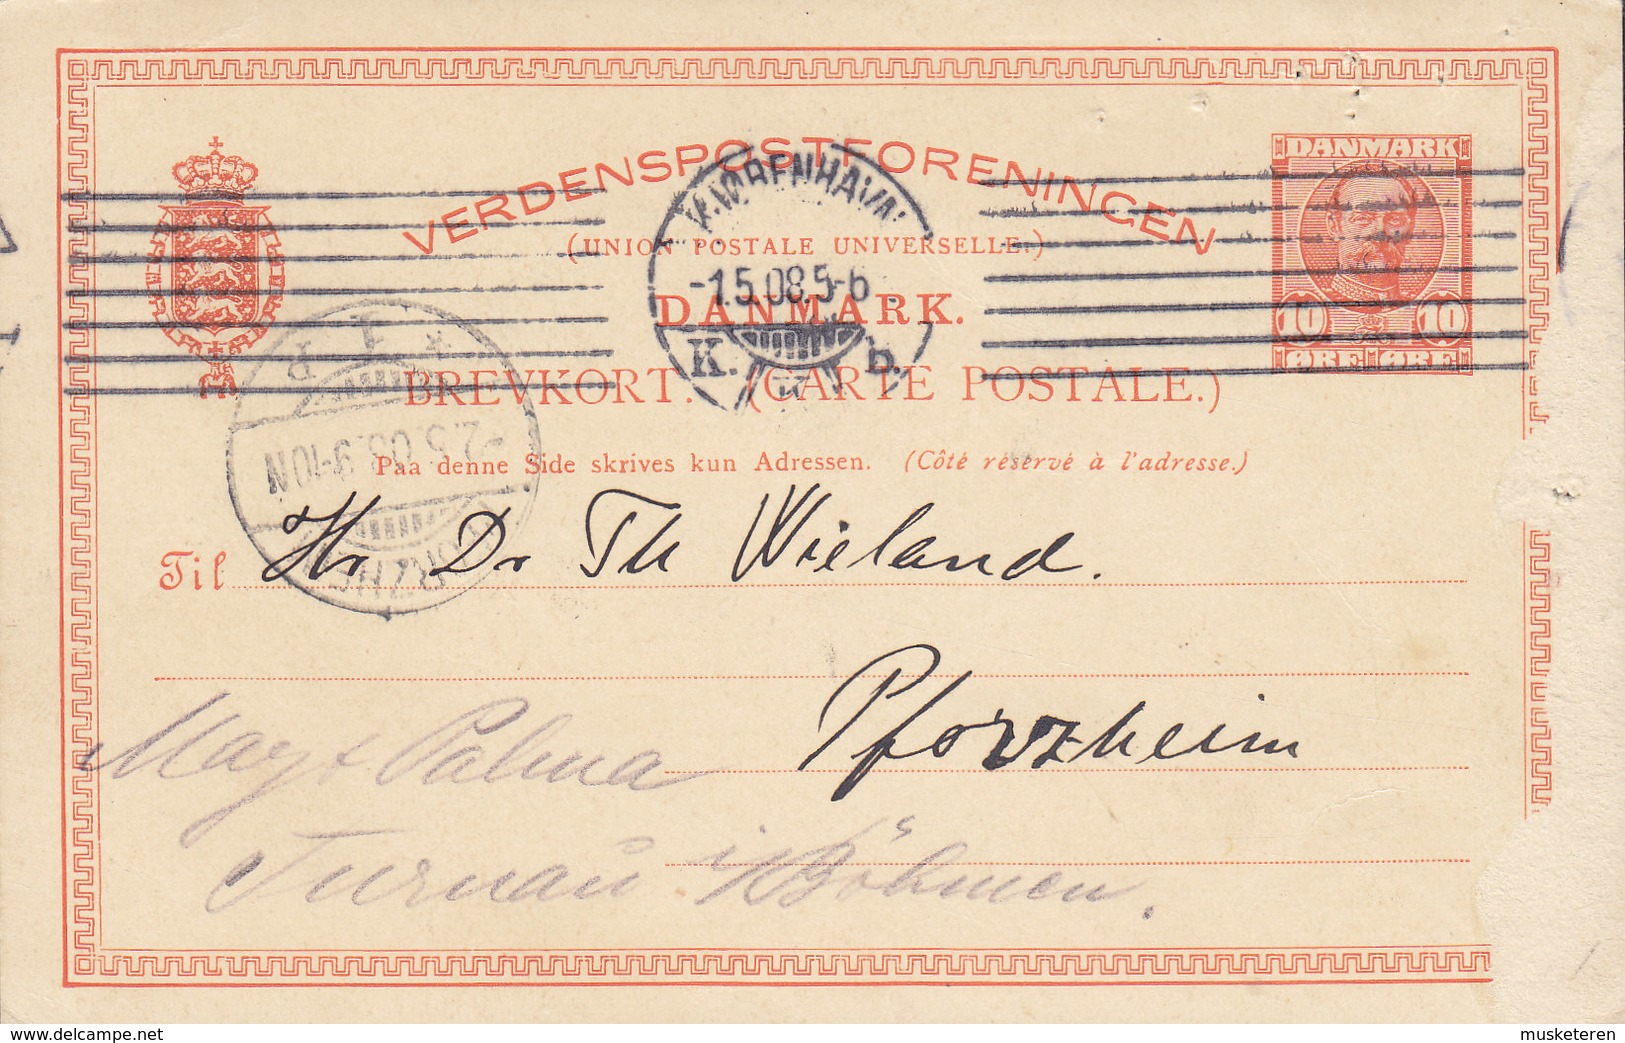 VERDENSPOSTFORENINGEN
(UNION POSTALE UNIVERSELLE.)
DANMARK.
BREVKORT. (CARTE POSTALE.)
Paa denne Side skrives kun Adressen. (Côté réservé à l'adresse.)
DANMARK
10 10
ØRE ØRE
KJØBENHAVN
-1.5.08.5-6
K. b.
K
-2.5.08.9-10N
Til Hr Dr Th Wieland.
Pforzheim
May & Palma
Turnau i/Böhmen.
musketeren